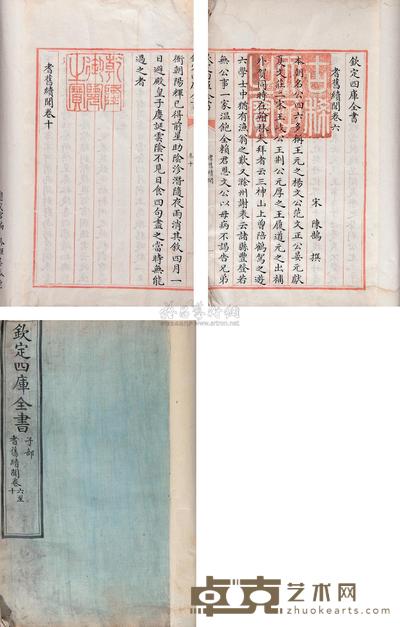 欽定四庫全書
耆舊續聞卷六
宋 陳鵠 撰
本朝名公四六多稱王元之楊文公范文正公晏元獻
夏文莊二宋王岐公王荆公元厚之王履道元之出補
外賀同時在翰林大拜者云三神山上曾陪鶴駕之遊
六學士中猶有漁翁之歎又滁州謝表云諸縣豐登若
無公事一家溫飽全賴君恩文公以母病不謁告兄弟
耆舊續聞
卷十
衝朝陽輝已得前星助陰沴潛隨夜雨消其敘四月一
日避殿皇子慶誕雲陰不見日食四句盡之當時無能
過之者
耆舊續聞卷十
乾隆御覽之寶
欽定四庫全書
子部
耆舊續聞卷六至十
卓克艺术网
www.zhuokearts.com